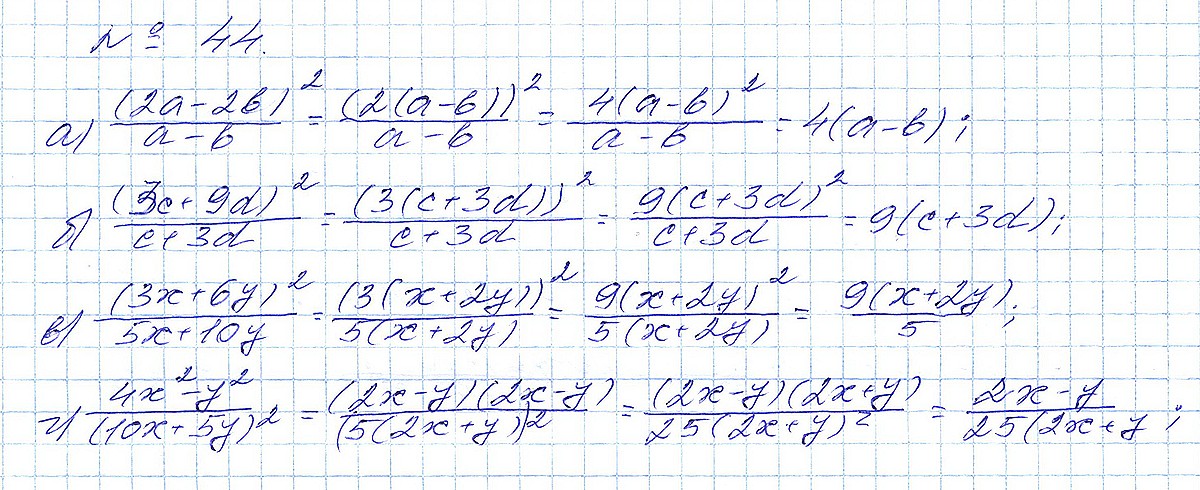 № 44.
а) (2a-2b)²/(a-b) = (2(a-b))²/(a-b) = 4(a-b)²/(a-b) = 4(a-b);
б) (3c+9d)²/(c+3d) = (3(c+3d))²/(c+3d) = 9(c+3d)²/(c+3d) = 9(c+3d);
в) (3x+6y)²/(5x+10y) = (3(x+2y))²/(5(x+2y)) = 9(x+2y)²/(5(x+2y)) = 9(x+2y)/5;
г) (4x²-y²)/(10x+5y)² = (2x-y)(2x-y)/(5(2x+y))² = (2x-y)(2x+y)/(25(2x+y)²) = (2x-y)/(25(2x+y;